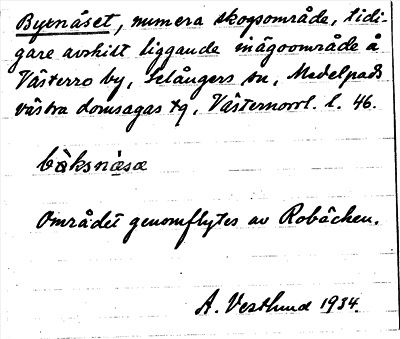 Byxnäset, numera skogsområde, tidi-
gare avskilt liggande inägoområde å
Västerro by, Selångers sn, Medelpads
västra domsagas tg, Västernorrl. l. 46.
bàksnäsæ
Området genomflytes av Robäcken.
A. Vestlund 1934.